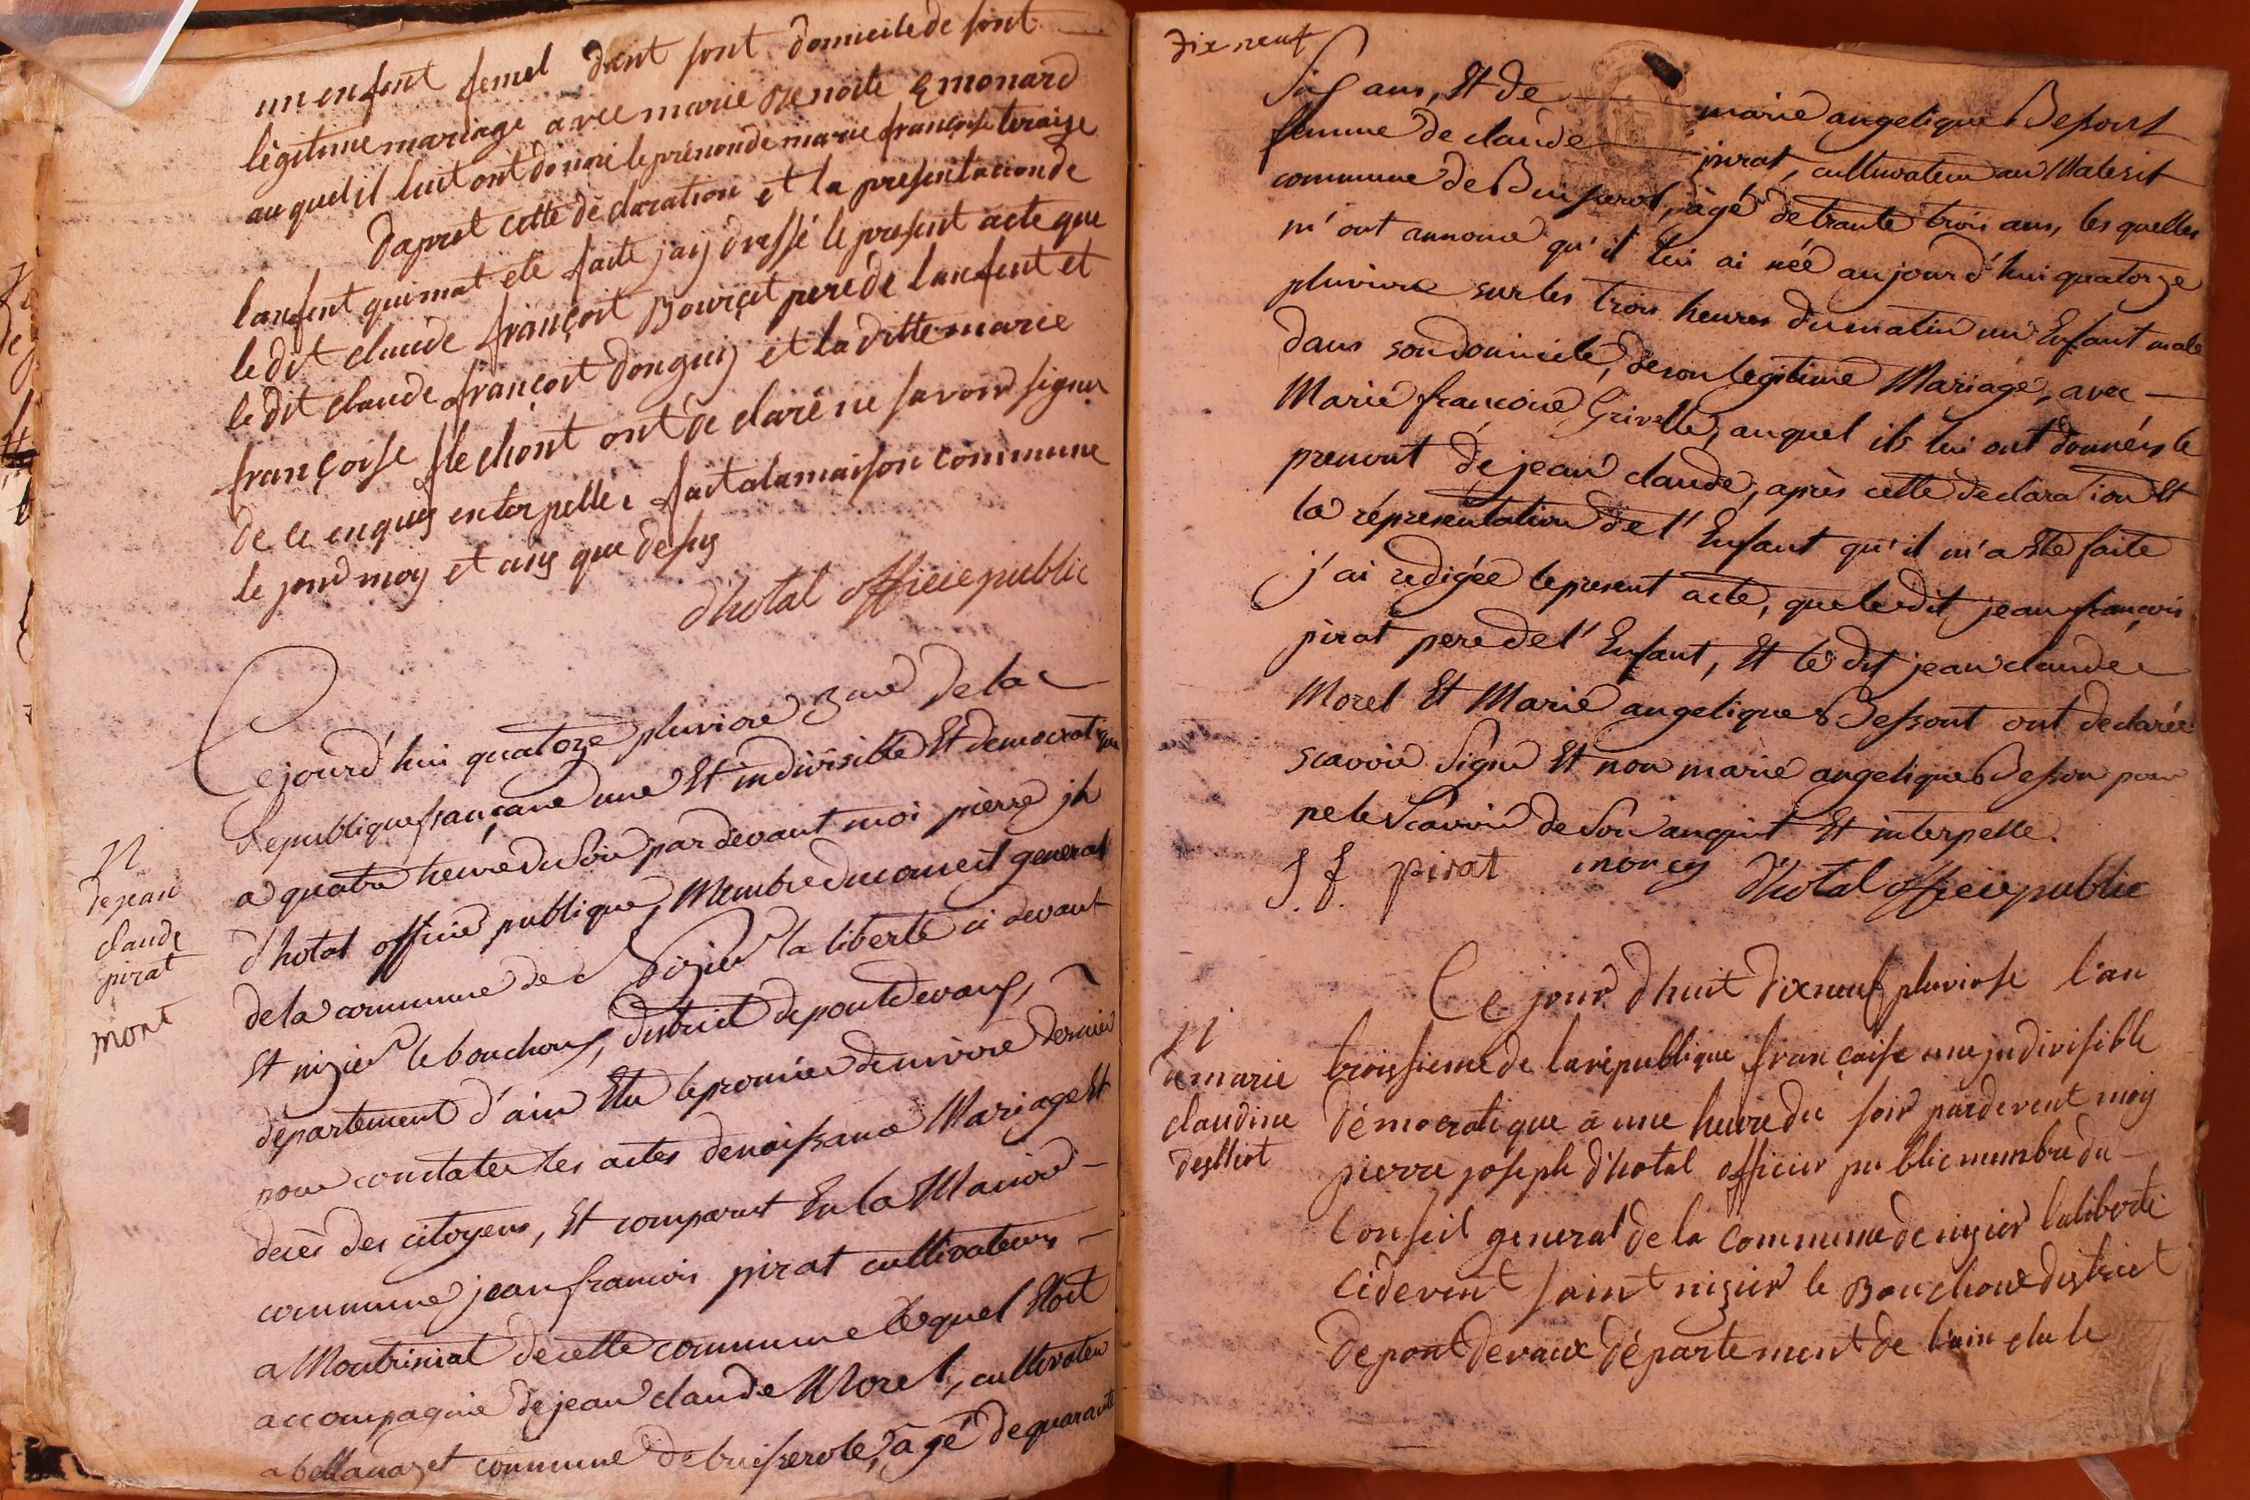 un enfent femel dant sont domicile de sont
légitime mariage avec marie Benoite Emonard
auquel il luit ont donné le prénon de marie françoise teraize
daprest cette déclaration et la présentation de
lanfent qui mat eté faite jay dressé le present acte que
le dit claude françoit Bourcet pere de lanfent et
le dit claude françoit donguy et la ditte marie
françoise flechont ont de claré ne savoir signer
de ce enquis enterpelle, fait a la maison commune
le jour moy et ans que desus
d'hotal officie public
Cejourd'hui quatorze pluviose 3 ane de la
Republique françane une Et indivisible Et democratique
a quatre heure du Soir par devant moi pierre jh
d'hotal officié publique, Membre du conseil general
de la commune de Nizier la liberté ci devant
St nizier le bouchoux, district de pontdevaux,
departement d'ain Elu le premier de nivose dernier
pour constater les actes de naissance Mariage Et
decès des citoyens, Et comparut En la Maison
commune jean francois pirat cultivateur
a Montrinial de cette commune lequel Etoit
accompagnié de jean claude Morel, cultivateur
a bellanozet commune de buisserole, âgé de quarante
N
de jean
claude
pirat
mort
dix neuf
Six ans, Et de marie angelique Bessont
femme de claude pirat, cultivateur au Maleset
commune de Buiserol, âgé de trante trois ans, les quelles
m'ont annoncé qu'il lui ai née aujourd'hui quatorze
pluviose sur les trois heures du matin un Enfant male
dans son domicile, de son legitime Mariage, avec
Marie francoise Grivelle, auquel ils lui ont donnés le
prenont de jean claude, après cette déclaration Et
la répresentation de l'Enfant qu'il m'a Eté faite
j'ai redigée le present acte, que le dit jean françois
pirat pere de l'Enfant, Et le dit jean claude
Morel Et Marie angelique Bessont ont declarée
scavoir Signé Et non marie angelique Besson pour
ne le Scavoir de Son anquint Et interpelle.
J. f. pirat morey d'hotal officie public
Ce jour d'huit dixneuf pluviose l'an
troissieme de la république françoise une jndivisible
démocratique a une heure du soir pardevent moy
pierre joseph d'hotal officier public membre du
Conseil general de la commune de nizier la liberté
cidevent saint nizier le Bouchoux district
de pont devaux département de l'ain elu le
N
de marie
claudine
desthiot